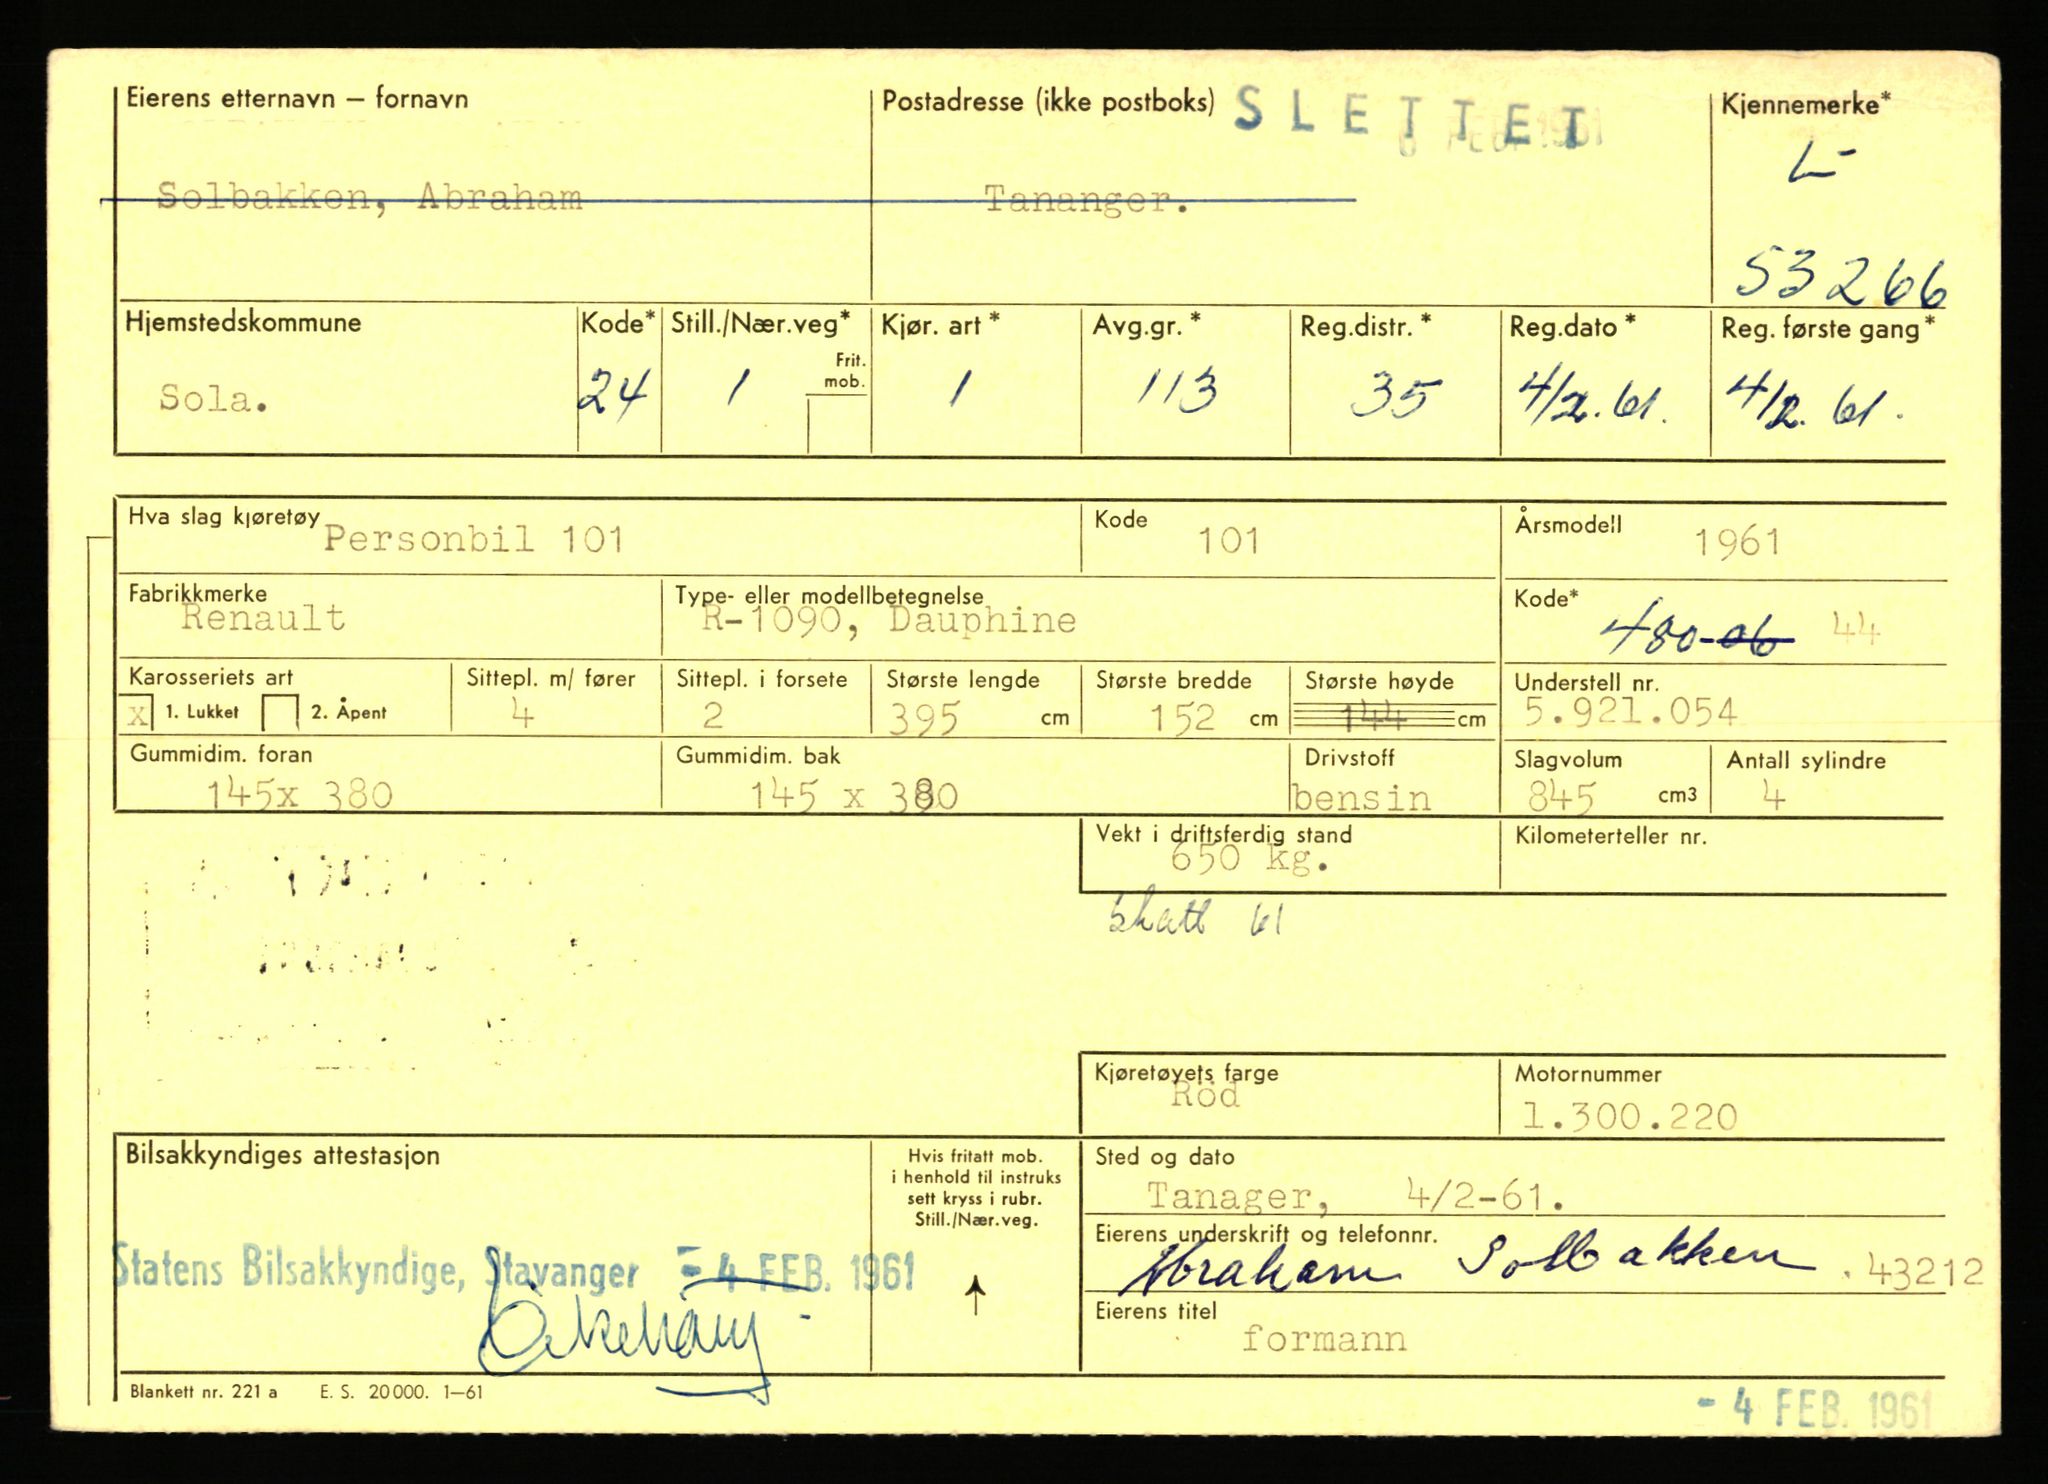 Eierens etternavn – fornavn
Postadresse (ikke postboks)
SLETTET
1961
Kjennemerke*
L-
Solbakken, Abraham
Tananger.
53266
Hjemstedskommune
Kode*
Still./Nær.veg*
Kjør. art*
Avg.gr.*
Reg.distr.*
Reg.dato*
Reg. første gang*
Frit. mob.
Sola.
24
1
1
113
35
4/2.61.
4/2.61.
Hva slag kjøretøy
Personbil 101
Kode
101
Årsmodell
1961
Fabrikkmerke
Renault
Type- eller modellbetegnelse
R-1090, Dauphine
Kode*
480-06 44
Karosseriets art
Sittepl. m/ fører
Sittepl. i forsete
Største lengde
Største bredde
Største høyde
Understell nr.
x 1. Lukket 2. Åpent
4
2
395 cm
152 cm
144 cm
5.921.054
Gummidim. foran
Gummidim. bak
Drivstoff
Slagvolum
Antall sylindre
145x 380
145 x 380
bensin
845 cm3
4
Vekt i driftsferdig stand
650 kg.
Kilometerteller nr.
skatt 61
Kjøretøyets farge
Röd
Motornummer
1.300.220
Bilsakkyndiges attestasjon
Hvis fritatt mob.
i henhold til instruks
sett kryss i rubr.
Still./Nær.veg.
Sted og dato
Tanager, 4/2-61.
Eierens underskrift og telefonnr.
Abraham Solbakken . 43212
Statens Bilsakkyndige, Stavanger - 4 FEB. 1961
Eierens titel
formann
Blankett nr. 221 a E. S. 20000. 1–61
- 4 FEB. 1961